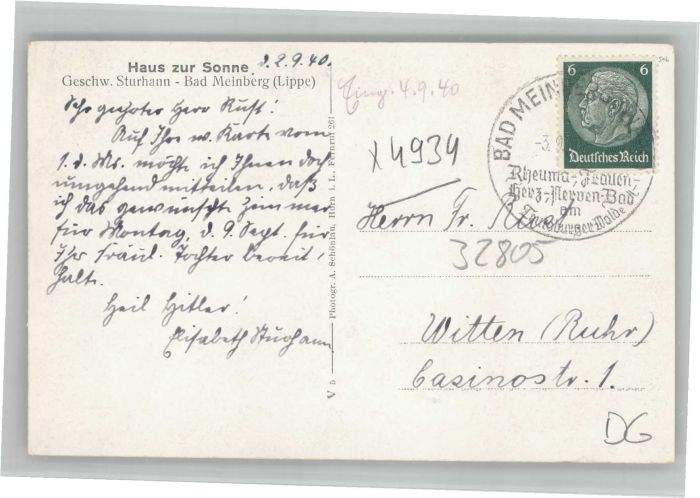 Haus zur Sonne, d. 2.9.40.
Geschw. Sturhann - Bad Meinberg (Lippe)
Sehr geehrter Herr Rust!
Auf Ihre w. Karte vom
1. d. Ms. möchte ich Ihnen doch
umgehend mitteilen, daß
ich das gewünschte Zimmer
für Montag, d. 9. Sept. für
Ihr Fräul. Tochter bereit
halte.
Heil Hitler!
Elisabeth Sturhann
V 5 Photogr. A. Schönlau, Horn i. L., Fernruf 261
Eing. 4.9.40
x 4934
6 6
Deutsches Reich
BAD MEIN
-3.9
Rheuma-, Frauen-
Herz-, Nerven-Bad
am
Teutoburger Walde
Herrn Fr. Rust
32805
Witten (Ruhr)
Casinostr. 1.
DG